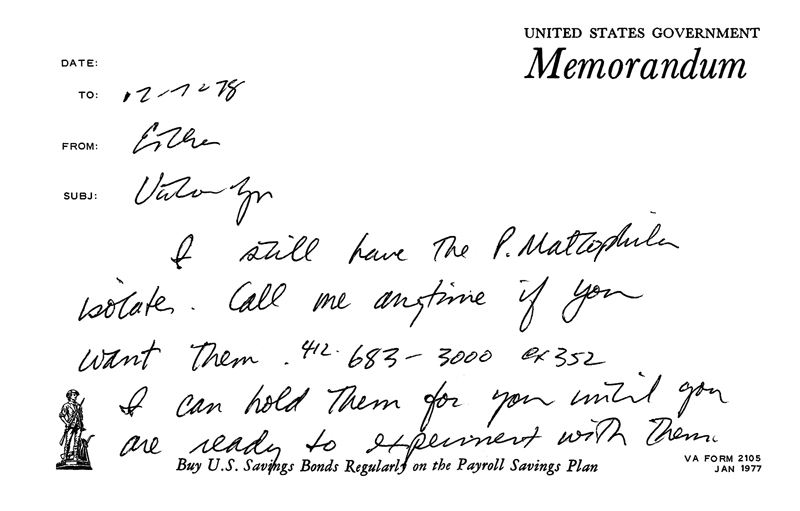 UNITED STATES GOVERNMENT
Memorandum
DATE:
TO: 12-7-78
FROM: Esther
SUBJ: Victor Yu
I still have the P. Maltophilia
isolates. Call me anytime if you
want them. 412-683-3000 ex352
I can hold them for you until you
are ready to experiment with them
Buy U.S. Savings Bonds Regularly on the Payroll Savings Plan
VA FORM 2105
JAN 1977